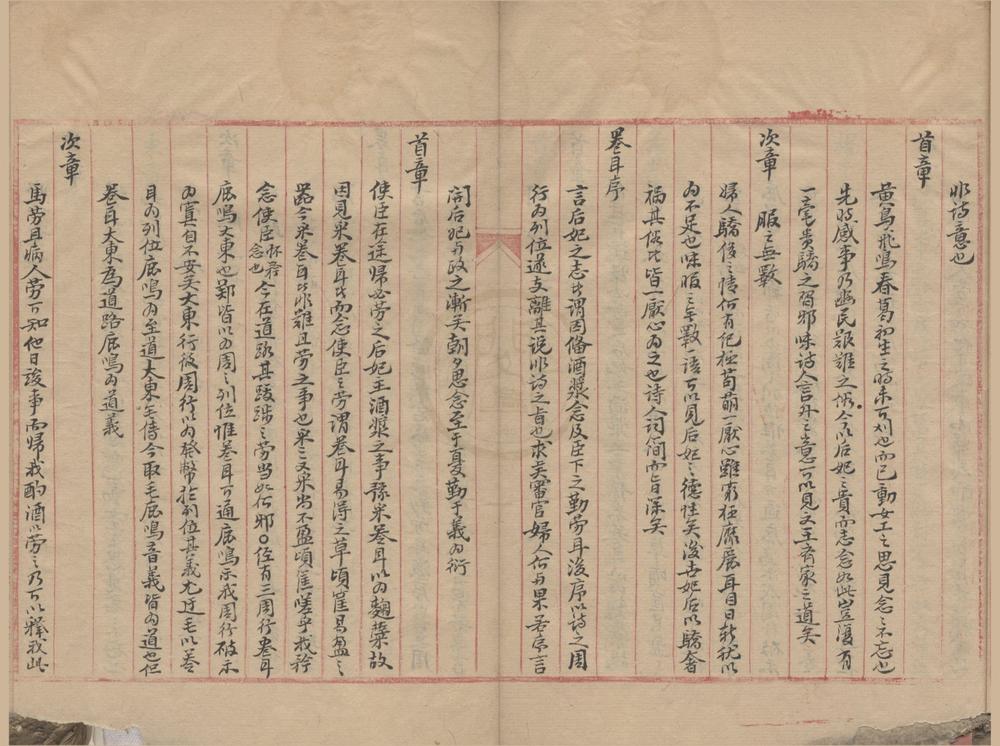 非詩意也
首章
黄鳥飛鳴春葛初生之時未可刈也而已動女工之思見念之不忘也
先時感事乃豳民艱難之俗今以后妃之貴而志念如此豈復有
一毫貴驕之習邪味詩人言外之意可以見文王齊家之道矣
次章 服之無斁
婦人驕侈之情何有紀極苟萌一厭心雖窮極靡麗耳目日新猶以
為不足也味服之無斁一語可以見后妃之德性矣後世妃后以驕奢
禍其俗此皆一厭心為之也詩人詞簡而旨深矣
卷耳序
言后妃之志此謂因備酒漿念及臣下之勤勞耳後序以詩之周
行為列位遂支離其説非詩之旨也求賢審官婦人何與果若序言
開后妃與政之漸矣朝夕思念至于憂勤于義為衍
首章
使臣在途歸必勞之后妃主酒漿之事豫采卷耳以為麴糵故
因見采卷耳者而念使臣之勞謂卷耳易得之草頃筐易盈之
器今采卷耳者非難且勞之事也采之又采尚不盈頃筐嗟乎我矜
念使臣懷君念也今在道路其跋涉之勞當如何邪○經有三周行卷耳
鹿鳴大東也鄭皆以為周之列位惟卷耳可通鹿鳴示我周行破示
為寘自不安矣大東行彼周行以為發幣於列位其義尤迂毛以卷
耳為列位鹿鳴為至道大東無傳今取毛鹿鳴音義皆為道也但
卷耳大東為道路鹿鳴為道義
次章
馬勞且病人勞可知他日竣事而歸我酌酒以勞之乃可以釋我此